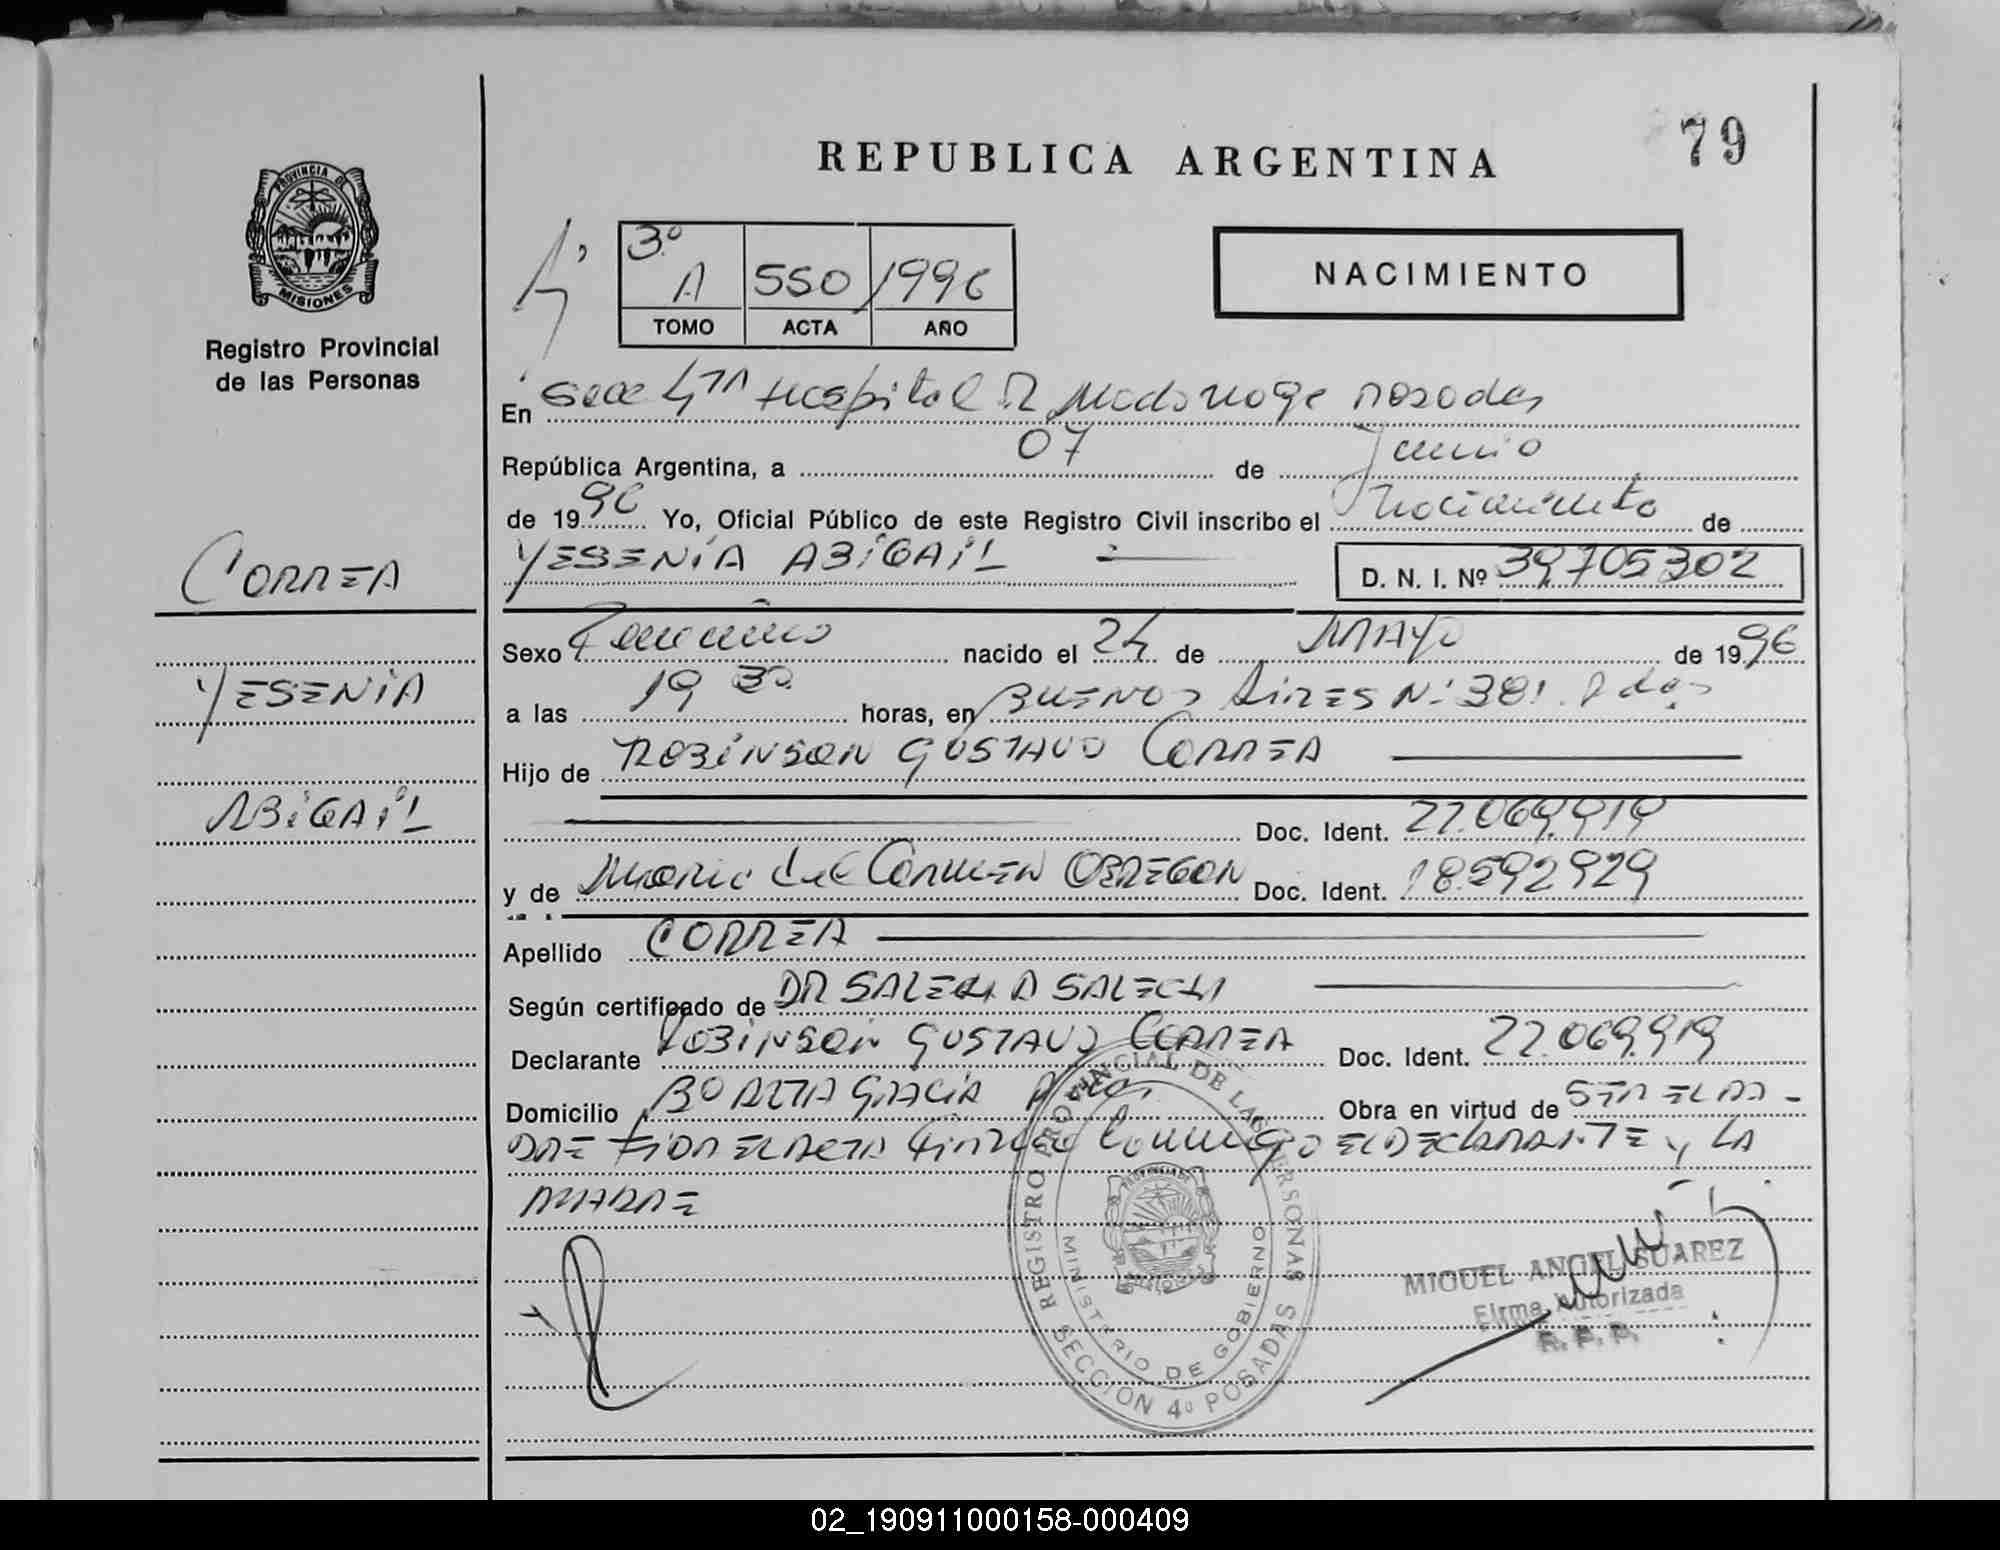 79
REPUBLICA ARGENTINA
PROVINCIA DE
MISIONES
Registro Provincial
de las Personas
3º A 550 1996
TOMO ACTA AÑO
NACIMIENTO
En Secc 4ta Hospital R Madariaga Posadas
República Argentina, a 07 de Junio
de 1996 Yo, Oficial Público de este Registro Civil inscribo el Nacimiento de
YESENIA ABIGAIL D. N. I. Nº 39705302
CORREA
YESENIA
ABIGAIL
Sexo Femenino nacido el 24 de MAYO de 1996
a las 19 30 horas, en BUENOS AIRES Nº 381. Pdas
Hijo de ROBINSON GUSTAVO CORREA
Doc. Ident. 22.069.919
y de Maria del CARMEN OBREGON Doc. Ident. 18.592929
Apellido CORREA
Según certificado de DR SALECH A SALECH
Declarante ROBINSON GUSTAVO CORREA Doc. Ident. 22.069.919
Domicilio Bº ALTA GRACIA Pdas Obra en virtud de SER EL PA-
DRE LEIDA EL ACTA FIRMAN Conmigo EL DECLARANTE y LA
MADRE
REGISTRO PROVINCIAL DE LAS PERSONAS
MINISTERIO DE GOBIERNO
SECCION 4º POSADAS
MIGUEL ANGEL SUAREZ
Firma Autorizada
R. P. P.
02_190911000158-000409